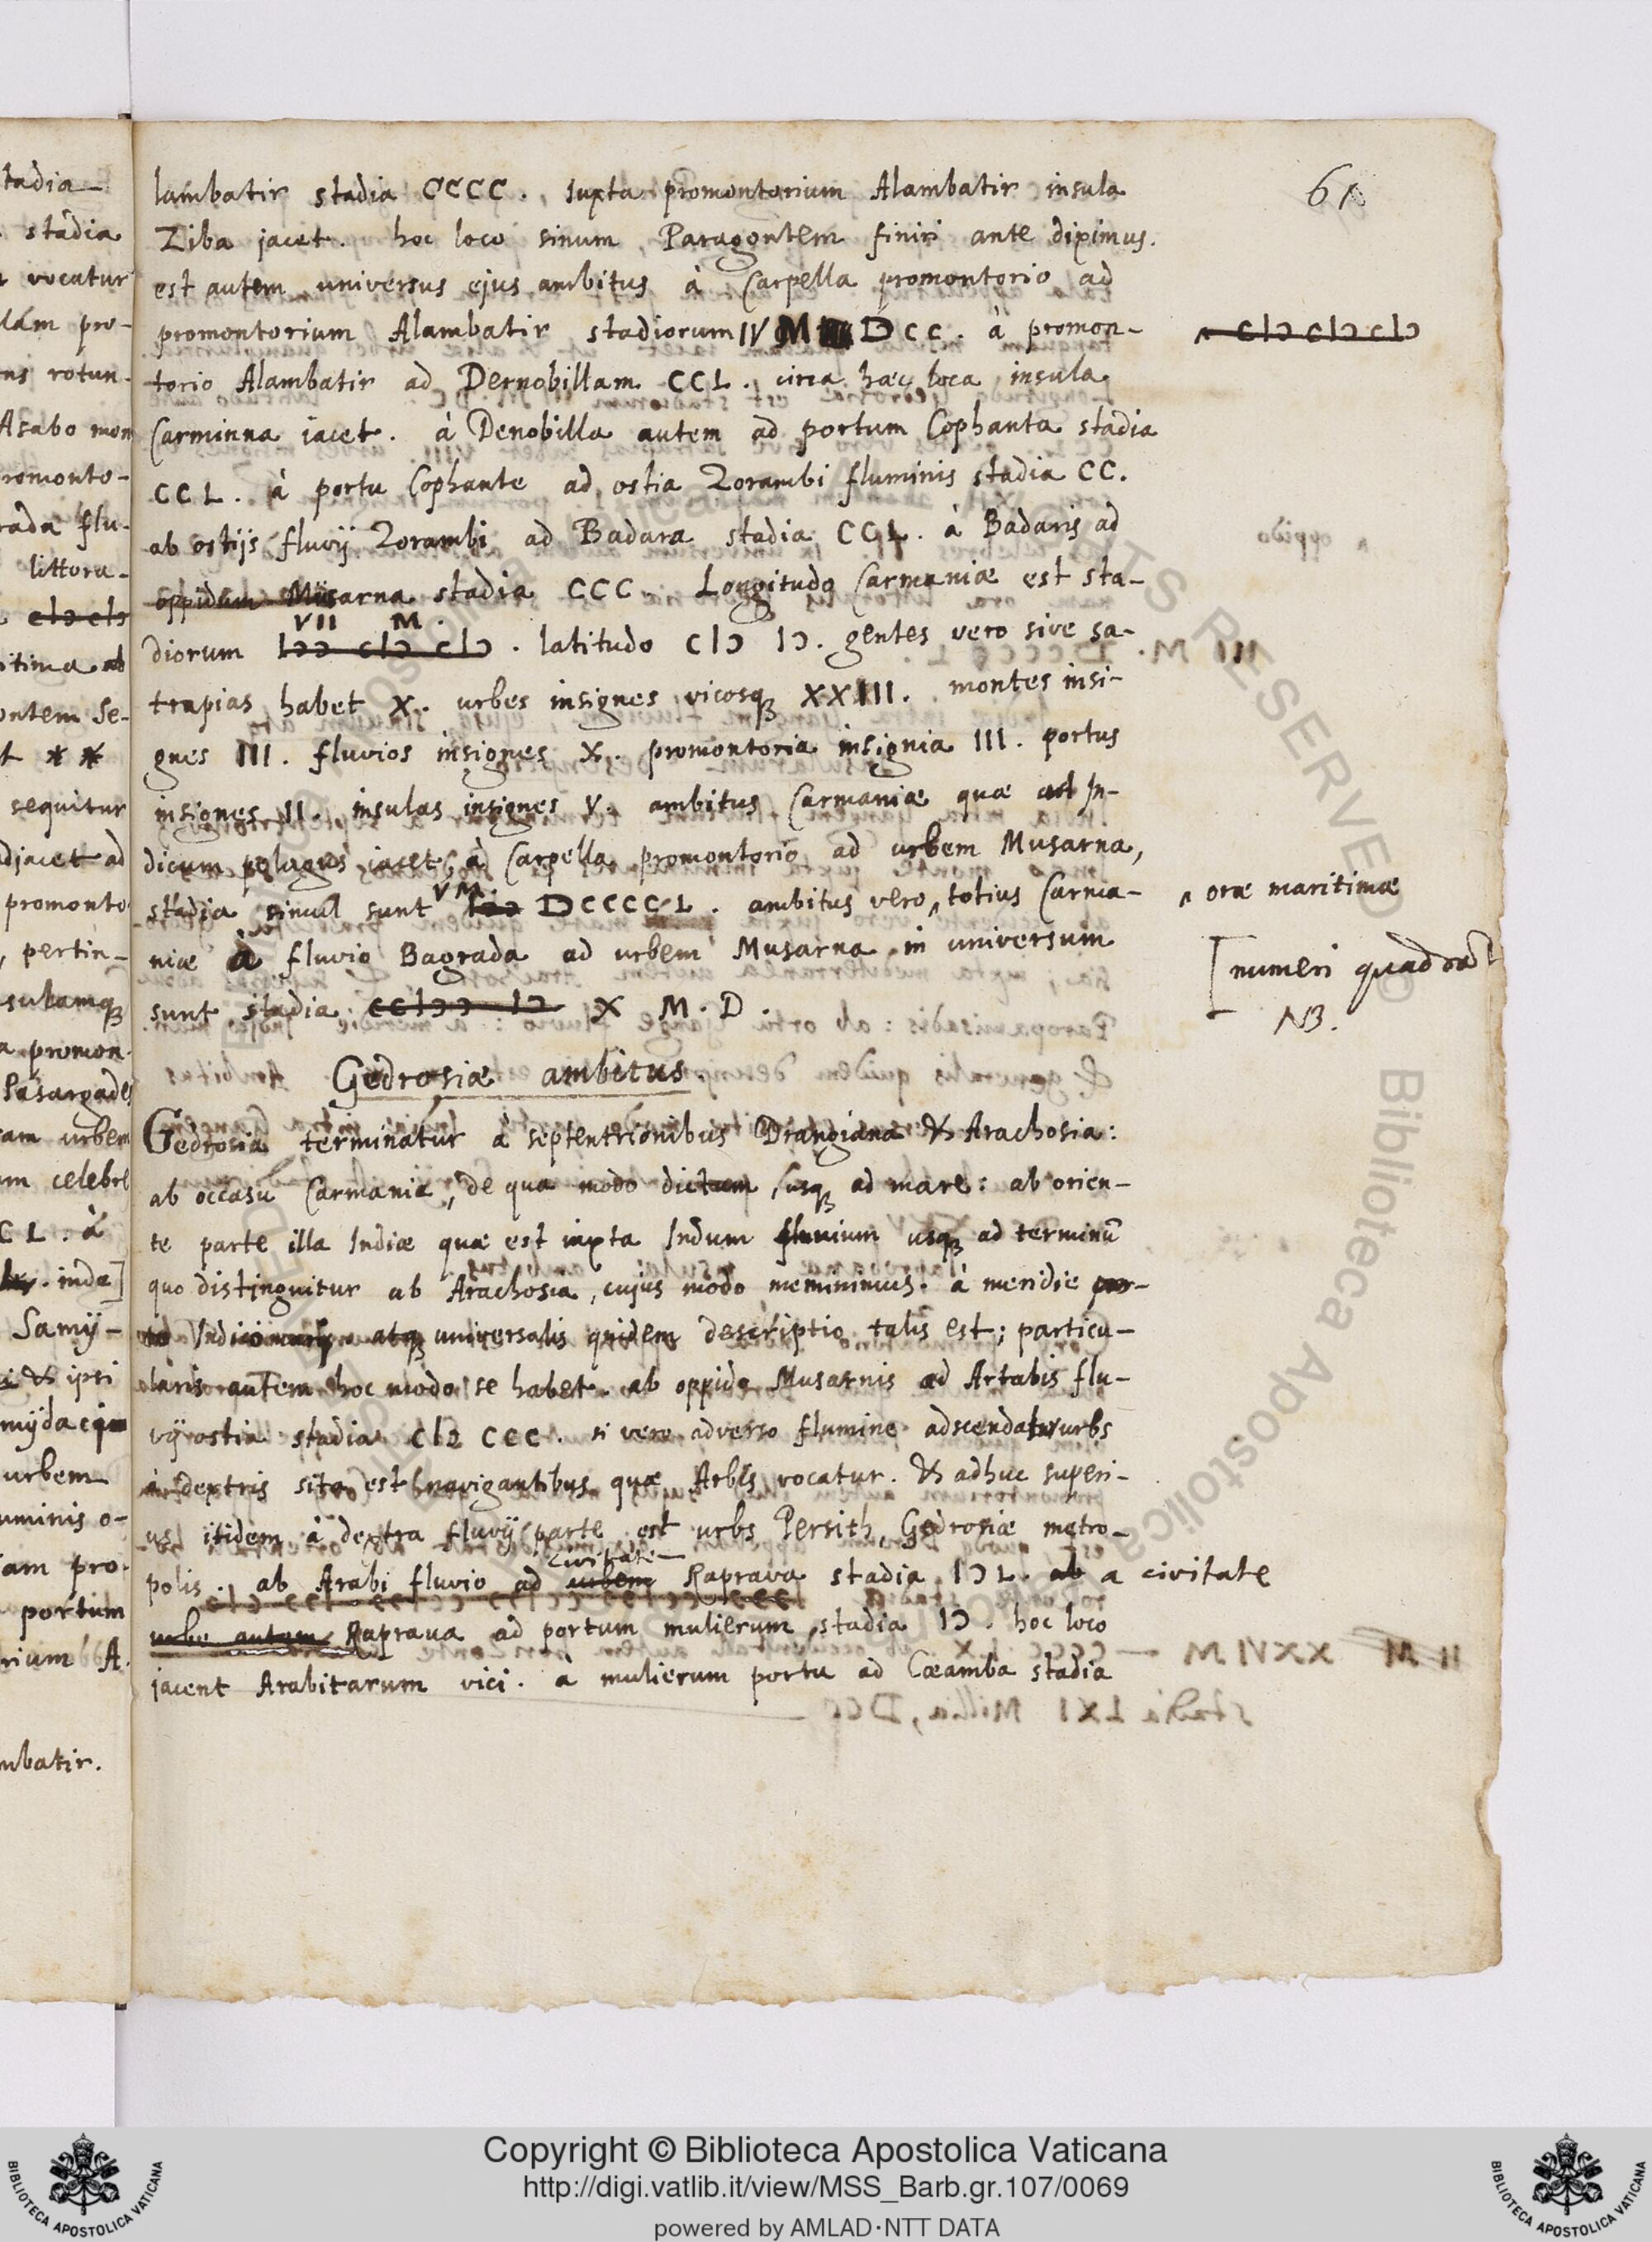 61
lambatir stadia CCCC. Juxta promontorium Alambatir insula
Ziba jacet. hoc loco sinum Paragontem finiri ante diximus.
est autem universus ejus ambitus à Carpella promontorio ad
promontorium Alambatir stadiorum IV M DCC. à promon-
cIɔ cIɔ cIɔ
torio Alambatir ad Dernobillam CCL. circa hæc loca insula
Carminna iacet. à Denobilla autem ad portum Cophanta stadia
CCL. à portu Cophante ad ostia Zorambi fluminis stadia CC.
ab ostijs fluvij Zorambi ad Badara stadia CCL. à Badaris ad
oppidum Musarna stadia CCC. Longitudo Carmaniæ est sta-
VII M.
diorum Iɔɔ cIɔ cIɔ. latitudo cIɔ Iɔ. gentes vero sive sa-
trapias habet X. urbes insignes vicosq XXIII. montes insi-
gnes III. fluvios insignes X. promontoria insignia III. portus
insignes II. insulas insignes V. ambitus Carmaniæ quæ ad In-
dicum pelagus iacet à Carpella promontorio ad urbem Musarna,
V M.
stadia simul sunt Iɔɔ DCCCCL. ambitus vero totius Carma-
oræ maritimæ
niæ à fluvio Bagrada ad urbem Musarna in universum
[numeri
sunt stadia ccIɔɔ Iɔ X M. D.
NB.
Gedrosiæ ambitus.
Gedrosia terminatur à septentrionibus Drangiana & Arachosia:
ab occasu Carmania, de qua modo dictum, usq ad mare: ab orien-
te parte illa Indiæ quæ est iuxta Indum fluvium usq ad terminū
quo distinguitur ab Arachosia, cujus modo meminimus. à meridie par-
te Indici maris. atq universalis quidem descriptio talis est; particu-
laris autem hoc modo se habet. ab oppido Musarnis ad Artabis flu-
vij ostia stadia cIɔ CCC. si vero adverso flumine adscendatur urbs
à dextris sita est navigantibus quæ Arbis vocatur. & adhuc superi-
us itidem à dextra fluvij parte est urbs Persith, Gedrosiæ metro-
civitate
polis. ab Arabi fluvio ad urbem Raprava stadia IɔL. ab a civitate
urbe autem Raprava ad portum mulierum stadia Iɔ. hoc loco
jacent Arabitarum vici. à mulierum portu ad Cœamba stadia
tadia
stadia
vocatur
pro-
rotun-
Asabo mon
promonto-
flu-
littora-
cIɔ cIɔ
itima ab
ontem Se-
* *
sequitur
adjacet ad
promonto
pertin-
subamq
promon-
Pasargades
urbem
celebre
CL. à
inde]
Samy-
& ipsi
urbem
fluminis o-
pro-
portum
A.
mbatir.
Copyright © Biblioteca Apostolica Vaticana
http://digi.vatlib.it/view/MSS_Barb.gr.107/0069
powered by AMLAD·NTT DATA
BIBLIOTECA APOSTOLICA VATICANA
BIBLIOTECA APOSTOLICA VATICANA